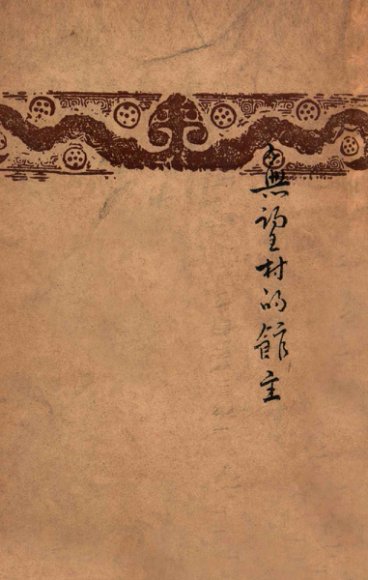 無望村的館主